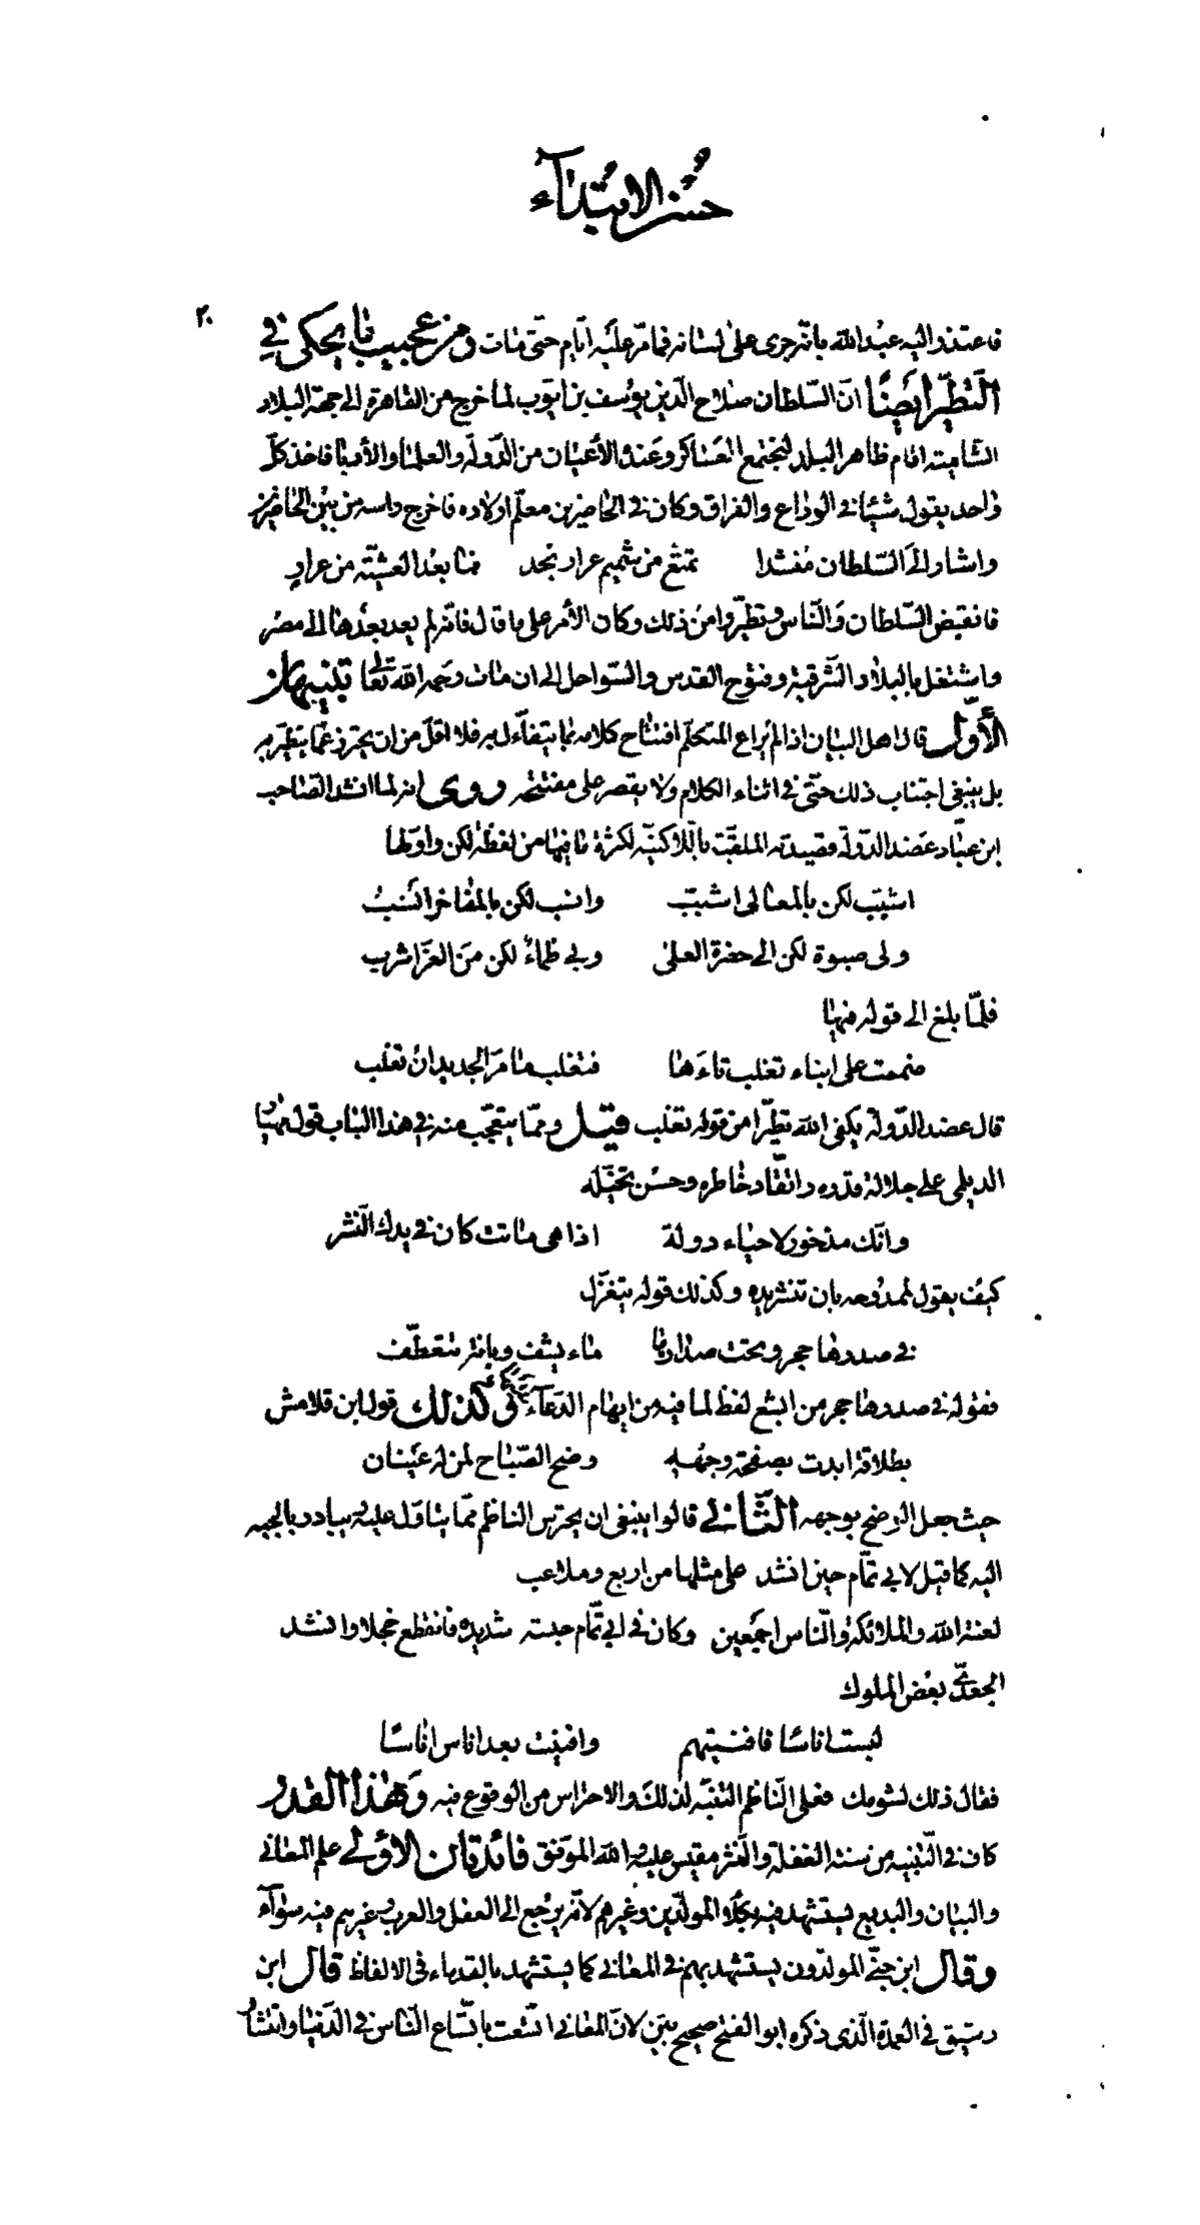 حسن الابتداء
٢٠
فاعتذر اليه عبد الله بانه جرى على لسانه فما مر عليه ايام حتى مات ومن عجيب ما يحكى في
التطير ايضا ان السلطان صلاح الدين يوسف بن ايوب لما خرج من القاهرة الى جهة البلاد
الشامية اقام ظاهر البلد ليجتمع العساكر وعنده الأعيان من الدولة والعلماء والأدباء فاخذ كل
واحد يقول شيئا في الوداع والفراق وكان في الحاضرين معلم اولاده فاخرج راسه من بين الحاضرين
واشار الى السلطان منشدا تمتع من شميم عرار نجد فما بعد العشية من عرار
فانقبض السلطان والناس وتطيروا من ذلك وكان الأمر على ما قال فانه لم يعد بعدها الى مصر
واشتغل بالبلاد الشرقية وفتوح القدس والسواحل الى ان مات رحمه الله تعالى تنبيهان
الأول قال اهل البيان اذا لم يراع المتكلم افتتاح كلامه بما يتفاءل به فلا اقل من ان يحترز عما يتطير به
بل ينبغي اجتناب ذلك حتى في اثناء الكلام ولا يقصر على مفتتحه روى انه لما انشد الصاحب
ابن عباد عضد الدولة قصيدته الملقبة باللاكنية لكثرة ما فيها من لفظة لكن واولها
اشبب لكن بالمعالى اشبب وانسب لكن بالمفاخر انسب
ولى صبوة لكن الى حضرة العلى وبي ظماء لكن من العز اشرب
فلما بلغ الى قوله فيها
ضممت على ابناء تغلب تاءها فتغلب ما مر الجديدان تغلب
قال عضد الدولة يكفى الله تطيرا من قوله تغلب قيل ومما يتعجب منه في هذا الباب قول مهيار
الديلمي على جلالة قدره واتقاد خاطره وحسن تخيله
وانك مذخور لاحياء دولة اذا هى ماتت كان في يدك النشر
كيف يقول لممدوحه بان تنشر يده وكذلك قوله يتغزل
في صدرها حجر وتحت صدارها ماء يشف وبانة تتعطف
فقوله في صدرها حجر من ابشع لفظ لما فيه من ايهام الدعاء كذلك قول ابن قلاقس
بطلاقة ابدت بصفحة وجهه وضح الصباح لمن له عينان
حيث جعل الوضح بوجهه الثاني قالوا ينبغى ان يحترس الناظم مما يتاول عليه يبادر بالجبه
اليه كما قيل لابي تمام حين انشد على مثلها من اربع وملاعب
لعنة الله والملائكة والناس اجمعين وكان في ابي تمام حبسة شديدة فانقطع خجلا وانشد
الجعدي بعض الملوك
لبست اناسا فافنيتهم وافنيت بعد اناس اناسا
فقال ذلك لشومك فعلى الناظم التنبه لذلك والاحتراس من الوقوع فيه وهذا القدر
كاف في التنبيه من سنة الغفلة والنثر مقيس عليه والله الموفق فائدتان الاولى علم المعاني
والبيان والبديع يستشهد فيه بكلام المولدين وغيرهم لانه يرجع الى العقل والعرب وغيرهم فيه سواء
وقال ابن جني المولدون يستشهد بهم في المعاني كما يستشهد بالقدماء في الالفاظ قال ابن
رشيق في العمدة الذى ذكره ابو الفتح صحيح بين لان المعاني اتسعت باتساع الناس في الدنيا وانتشار